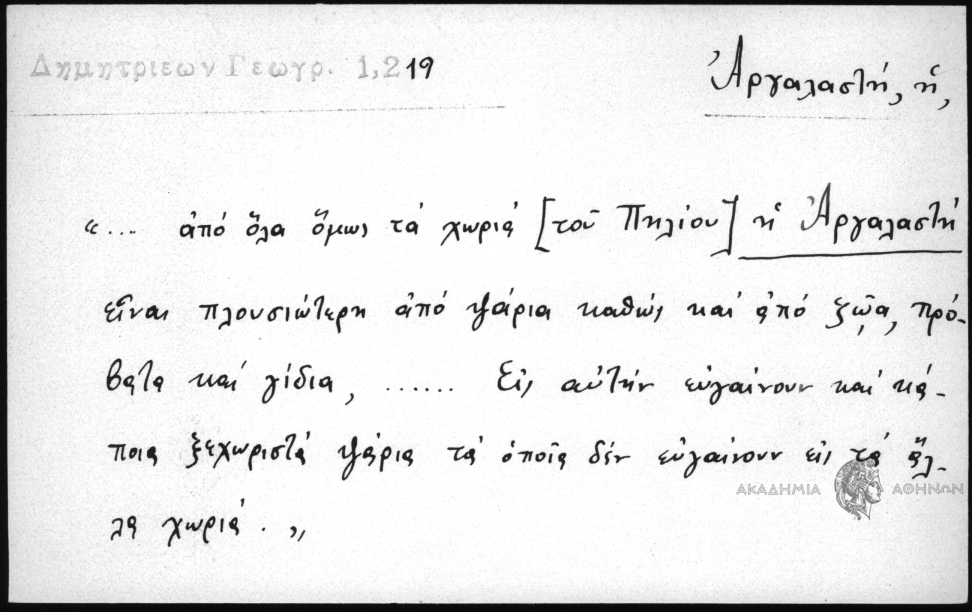 Δημητριεων Γεωγρ. 1,219
Ἀργαλαστή, ἡ,
“... ἀπό ὅλα ὅμως τά χωριά [τοῦ Πηλίου] ἡ Ἀργαλαστή
εἶναι πλουσιώτερη ἀπό ψάρια καθώς καί ἀπό ζῷα, πρό-
βατα καί γίδια, ...... Εἰς αὐτήν εὐγαίνουν καί κά-
ποια ξεχωριστά ψάρια τά ὁποῖα δέν εὐγαίνουν εἰς τά ἄλ-
λα χωριά. „
ΑΚΑΔΗΜΙΑ ΑΘΗΝΩΝ